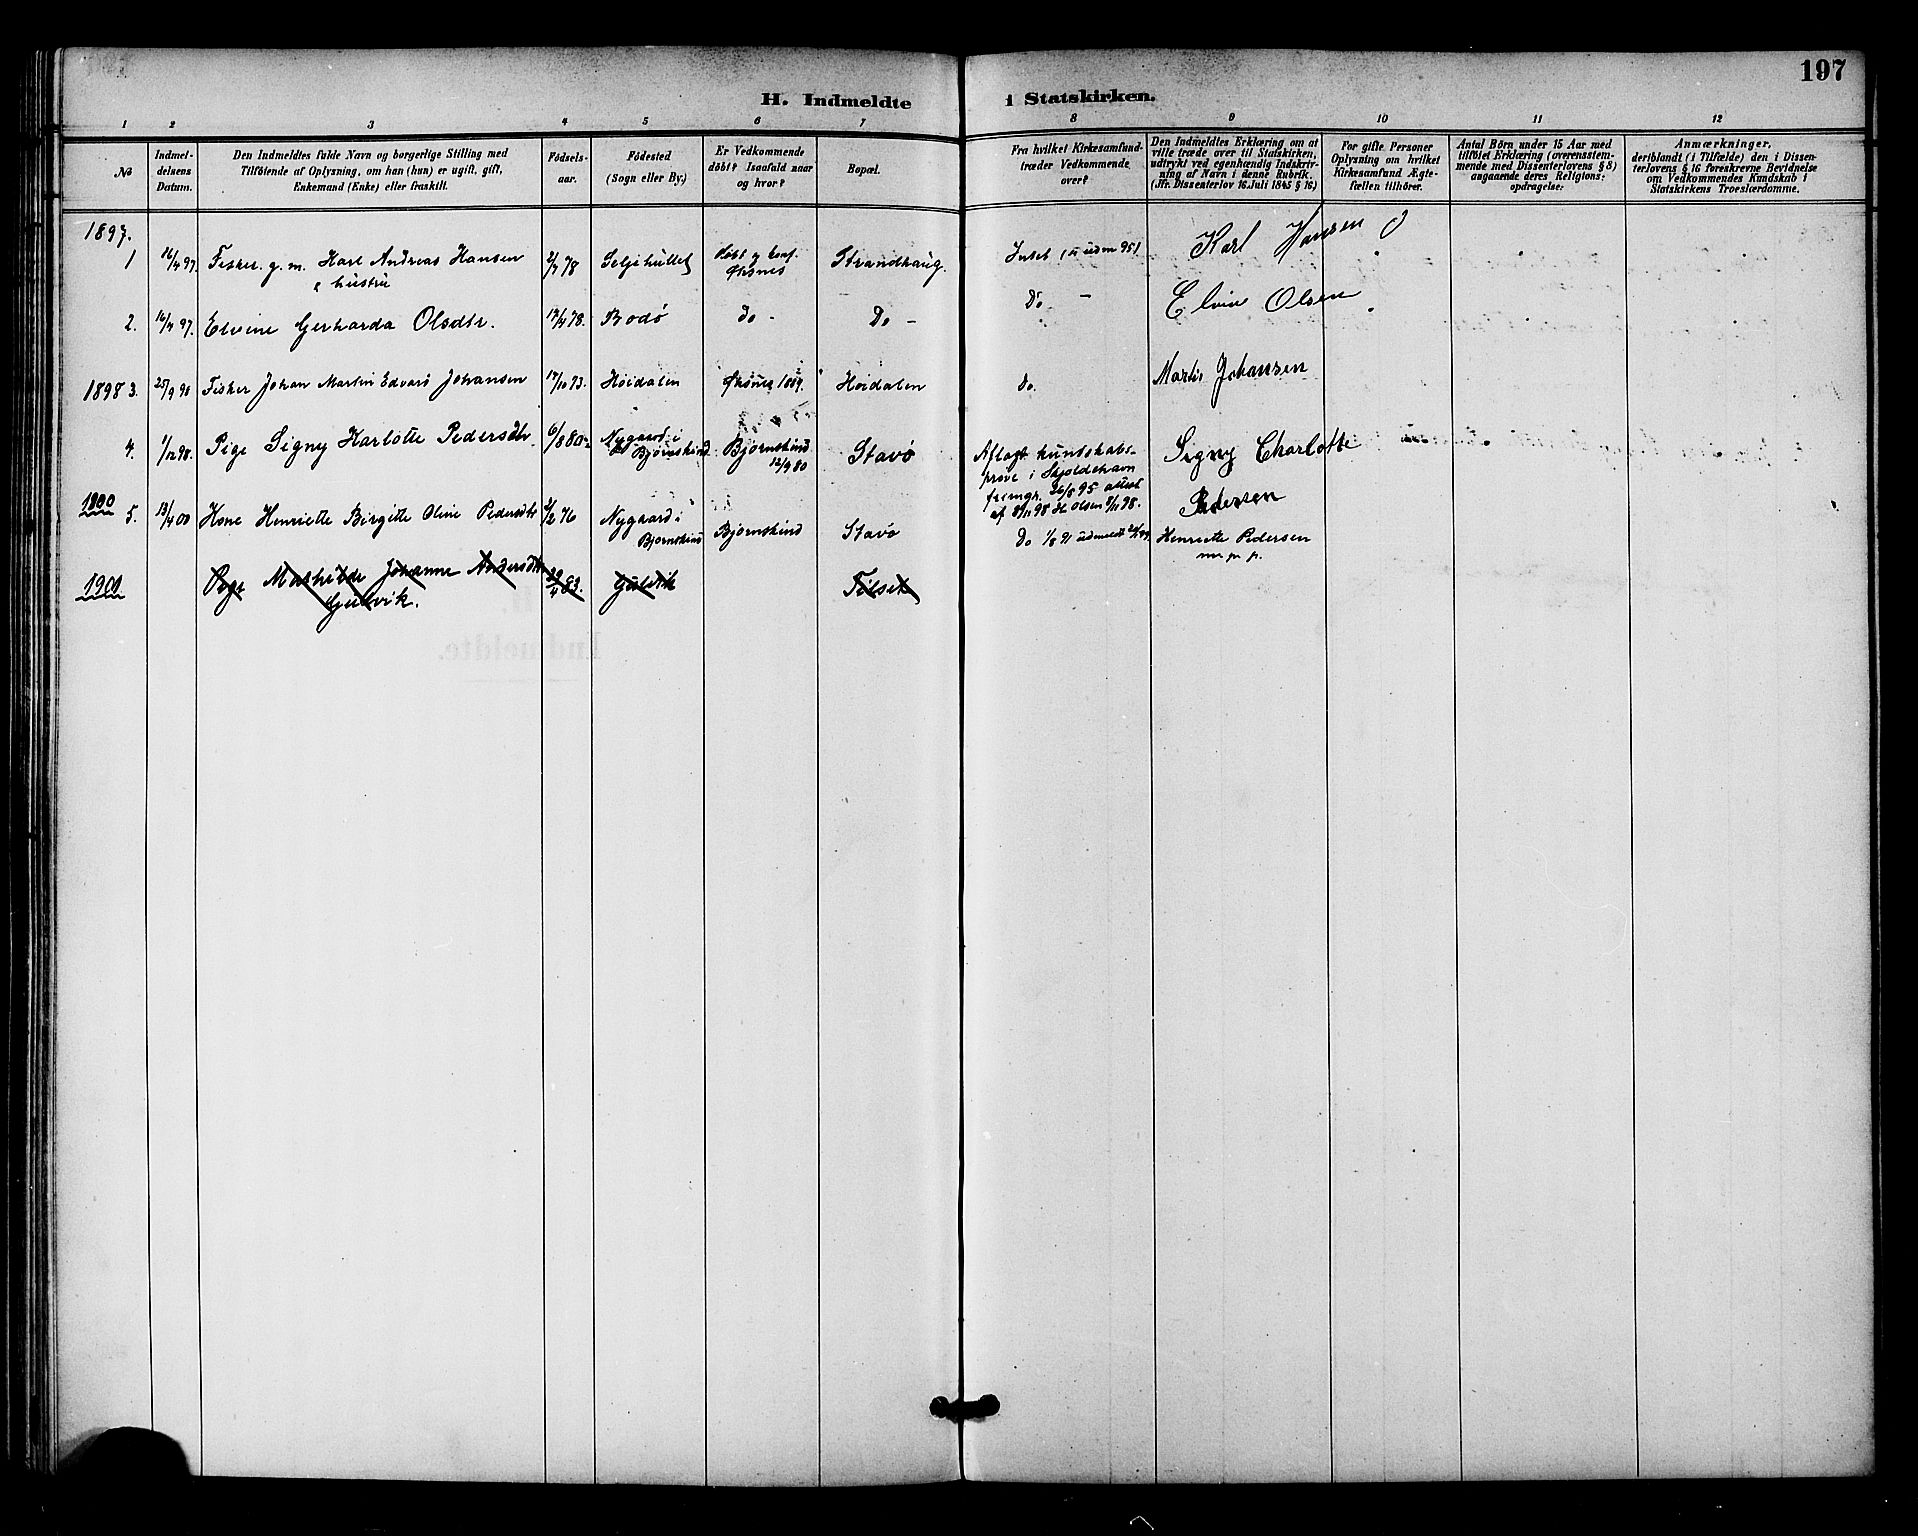 197
H. Indmeldte i Statskirken.
1 2 3 4 5 6 7 8 9 10 11 12
No
Indmel-
delsens
Datum.
Den Indmeldtes fulde Navn og borgerlige Stilling med
Tilföiende af Oplysning, om han (hun) er ugift, gift,
Enkemand (Enke) eller fraskilt.
Födsels-
aar.
Födested
(Sogn eller By.)
Er Vedkommende
döbt? Isaafald naar
og hvor?
Bopæl.
Fra hvilket Kirkesamfund
træder Vedkommende
over?
Den Indmeldtes Erklæring om at
ville træde over til Statskirken,
udtrykt ved egenhendig Indskriv-
ning af Navn i denne Rubrik.
(Jfr. Dissenterlov 16. Juli 1845 § 16.)
For gifte Personer
Oplysning om hvilket
Kirkesamfund Ægte-
fællen tilhörer.
Antal Börn under 15 Aar med
tilföiet Erklæring (overensstem-
mende med Dissenterlovens § 8)
angaaende deres Religions-
opdragelse:
Anmærkninger,
deriblandt (i Tilfælde) den i Dissen-
terlovens § 16 foreskrevne Bevidnelse
om Vedkommendes Kundskab i
Statskirkens Troeslærdomme.
1897.
1 16/4 97. Fisker. g. m. Karl Andreas Hansen 2/7 78 Döbt og konf. Strandhaug. Karl Hansen
& hustru Øksnes
2. 16/4 97. Elvine Gerharda Olsdtr. 78. Bodø Do - Do - Do - Elvine Olsen
1898 3. 25/9 98 Fisker Johan Martin Edvard Johansen 17/10 73. Høidalen Øksnes Høidalen Do. Martin Johansen
4. 1/12 98. Pige Signy Karlotte Pedersdtr. 6/8 80 Nygaard i Bjørnskind Bjørnskind 12/9 80 Stavø Aflagt kundskabs-
prøve i Skjoldehavn
Signy Charlotte
Pedersen
1900
5. 13/4 00 Kone Henriette Birgitte Oline Pedersdtr 76 Nygaard i Bjørnskind Bjørnskind Stavø Do 1/8 91 udmeldt Henriette Pedersen
m. p. p.
1901 Pige Mathilde Johanne Andersdtr 29/4 83. Gulvik Tilset
Gulvik.
Indmeldte.